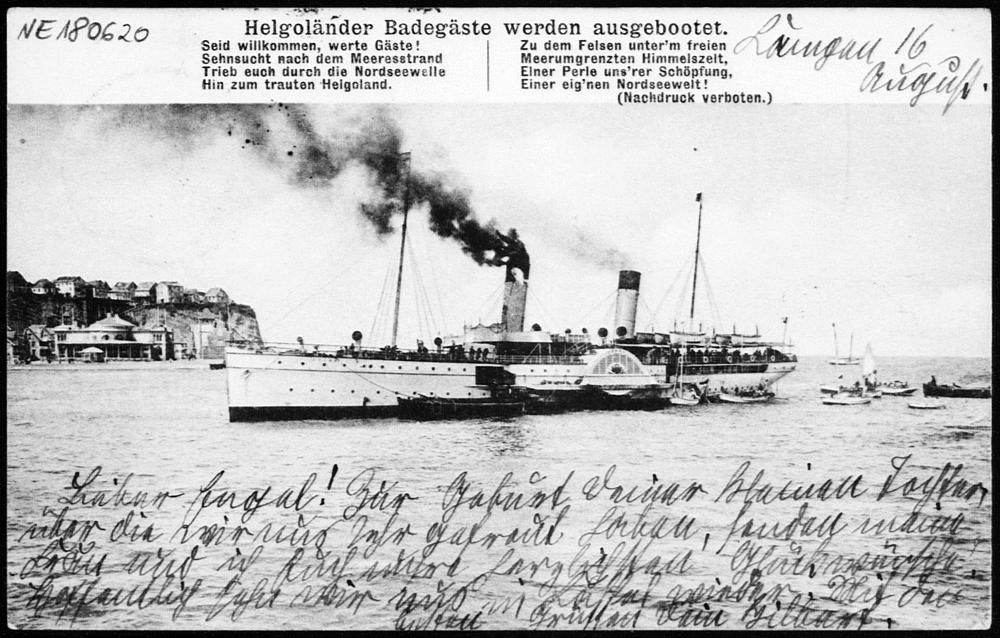 NE180620
Helgoländer Badegäste werden ausgebootet.
Seid willkommen, werte Gäste!
Sehnsucht nach dem Meeresstrand
Trieb euch durch die Nordseewelle
Hin zum trauten Helgoland.
Zu dem Felsen unter'm freien
Meerumgrenzten Himmelszelt,
Einer Perle uns'rer Schöpfung,
Einer eig'nen Nordseewelt!
(Nachdruck verboten.)
16
August.
Lieber Engel! Zur Geburt Deiner kleinen Tochter,
über die wir uns sehr gefreut haben, senden meine
Frau und ich Euch unsre herzlichsten Glückwünsche!
Hoffentlich sehn wir uns in wieder. Mit den
besten Grüssen Dein Gilbert.